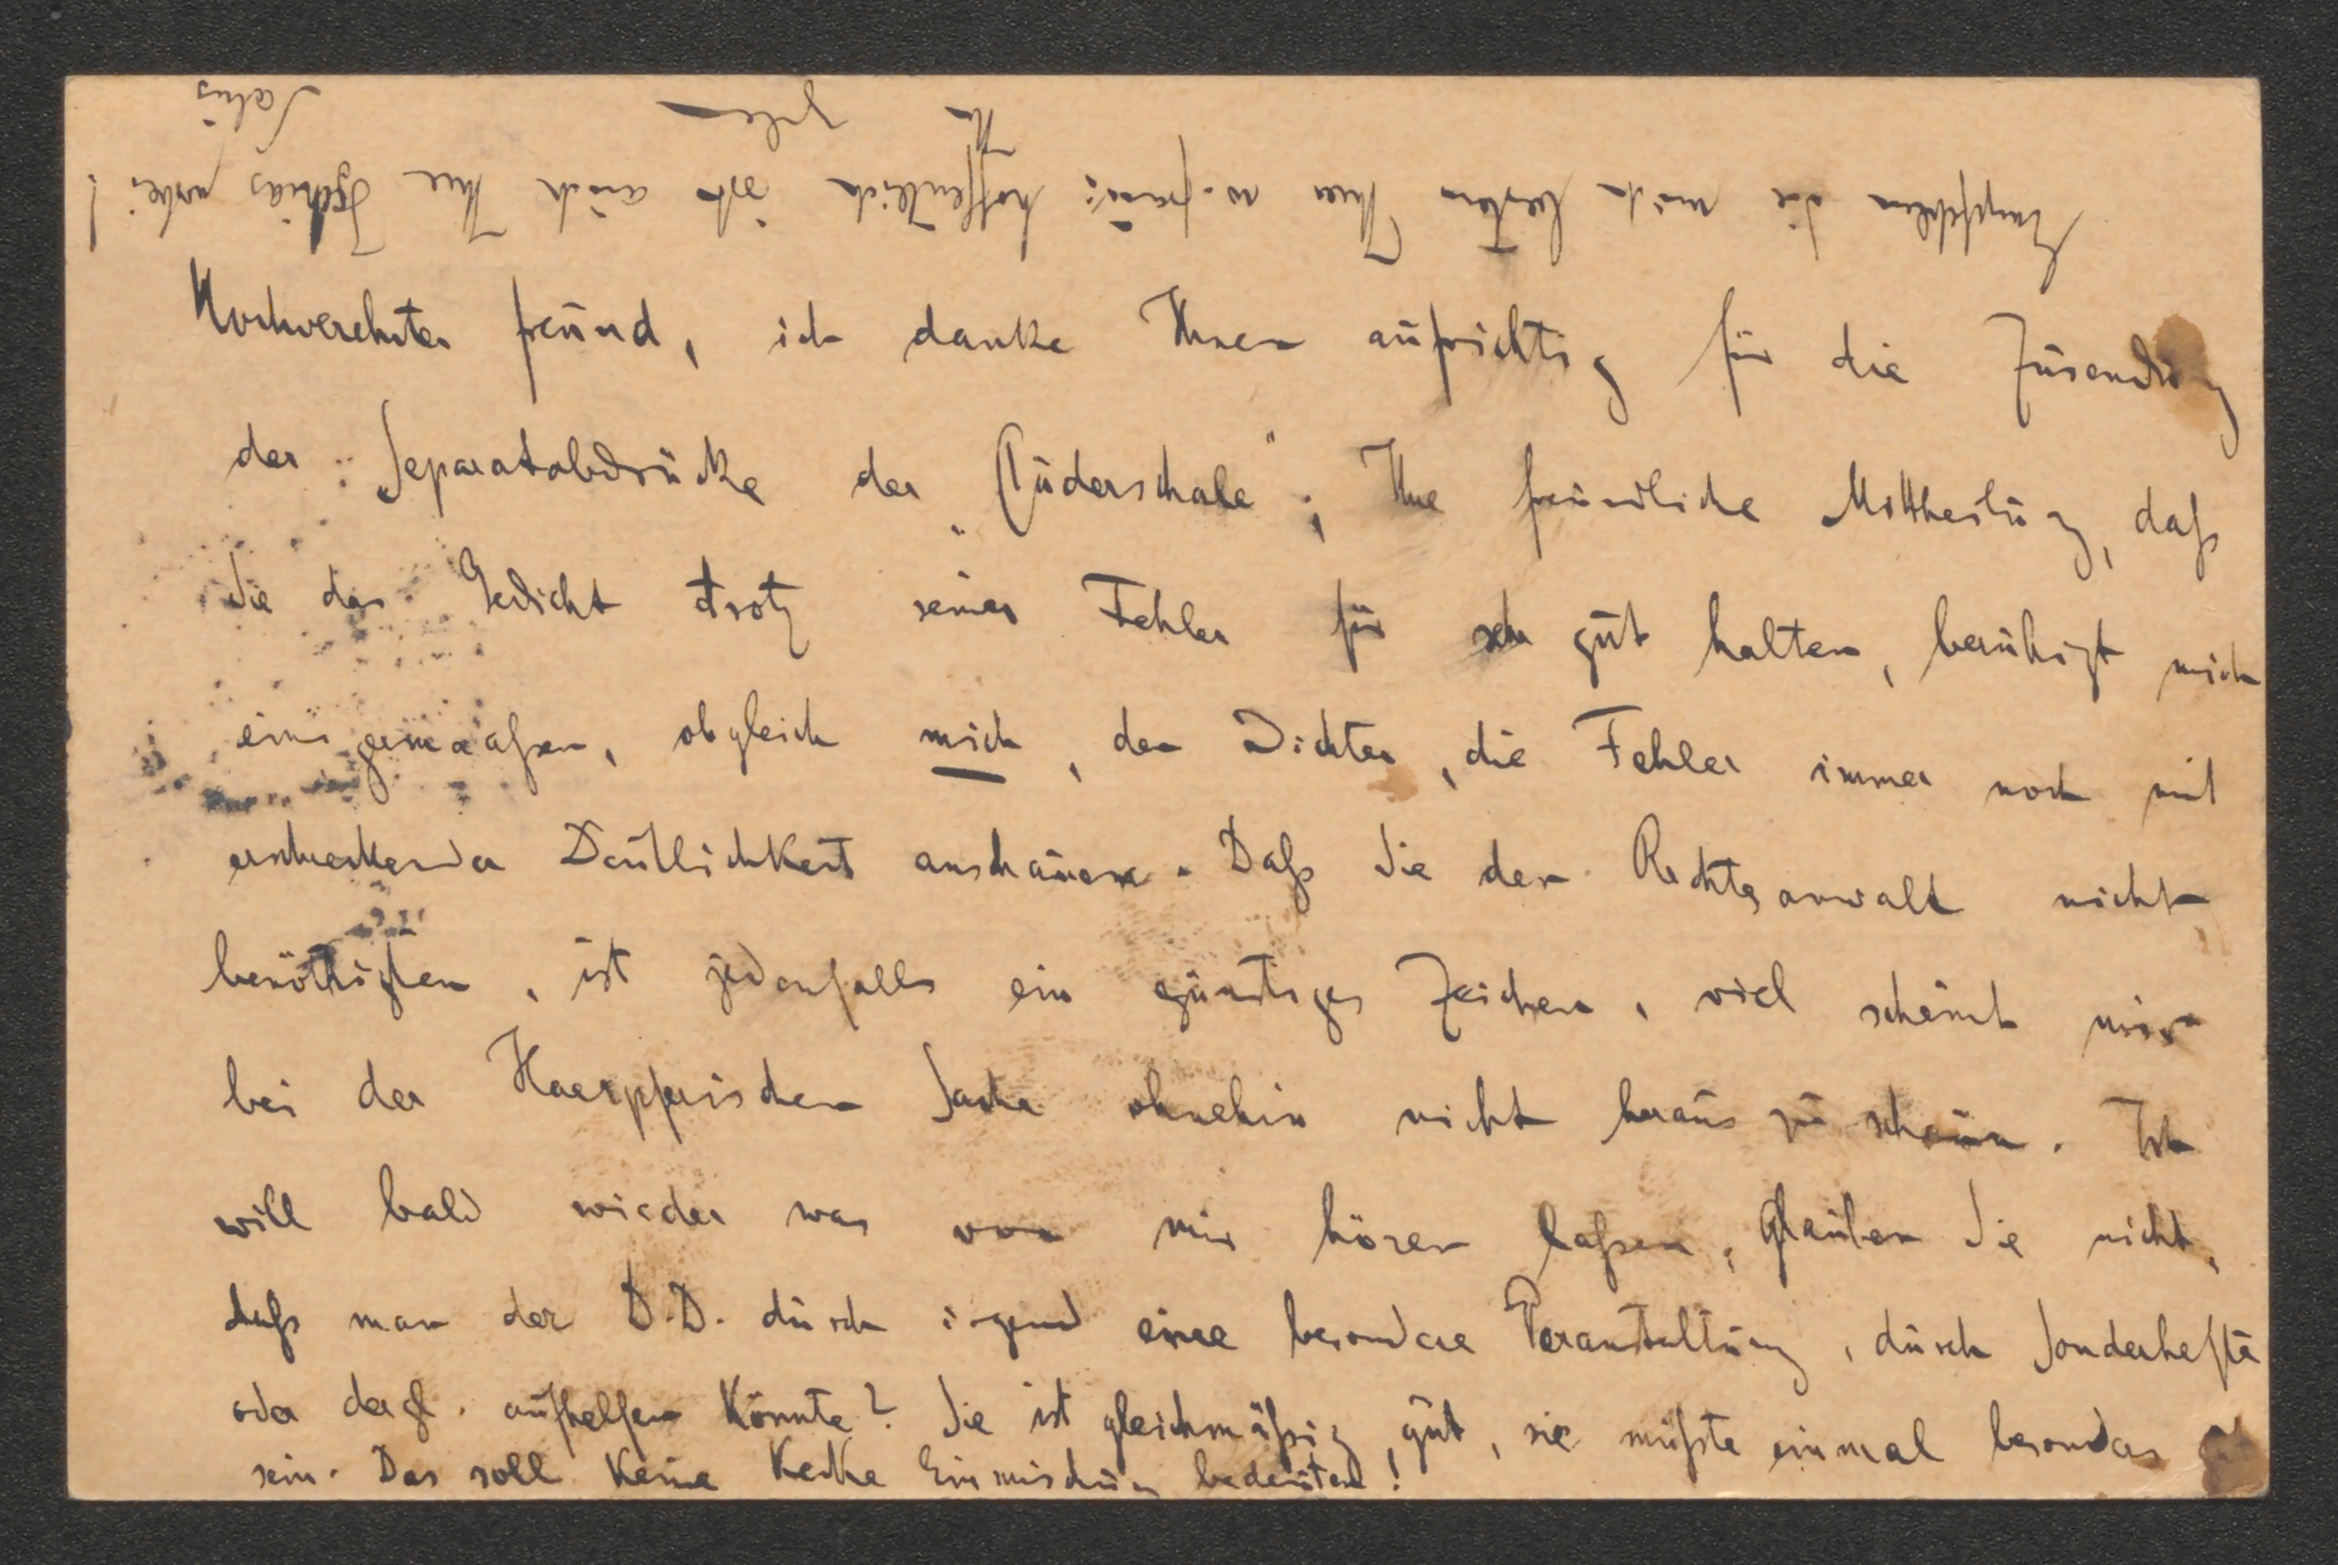 Hochverehrter Freund, ich danke Ihnen aufrichtig für die Zusendung
der Separatabdrücke der „Luderschale“; Ihre freundliche Mittheilung, daß
Sie das Gedicht trotz seiner Fehler für sehr gut halten, beruhigt mich
einigermaaßen, obgleich mich, den Dichter, die Fehler immer noch mit
erschreckender Deutlichkeit anschauen. Daß Sie den Rechtsanwalt nicht
benöthigten, ist jedenfalls ein günstiges Zeichen, viel scheint mir
bei der Haerpferischen Sache ohnehin nicht heraus zu schaun. Ich
will bald wieder was von mir hören laßen; glauben Sie nicht,
daß man der D.D. durch irgend eine besondere Veranstaltung, durch Sonderhefte
oder dergl. aufhelfen könnte? Sie ist gleichmäßig gut, sie müßte einmal besonders
sein. Das soll keine kecke Einmischung bedeuten!
Empfehlen Sie mich bestens Ihrer w. Frau; hoffentlich ist auch Ihre Ischias vorbei!
Ihr
Salus